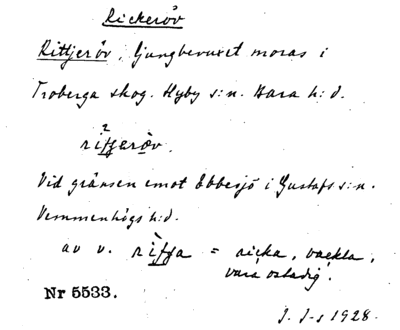 Rickeröv
Rittjeröv, ljungbevuxet moras i
Troberga skog. Hyby s:n. Bara h:d.
Vid gränsen emot Ebbesjö i Gustafs s:n.
Vemmenhögs h:d.
av v. = ricka, vackla,
vara ostadig.
Nr 5533.
J. I-s 1928.